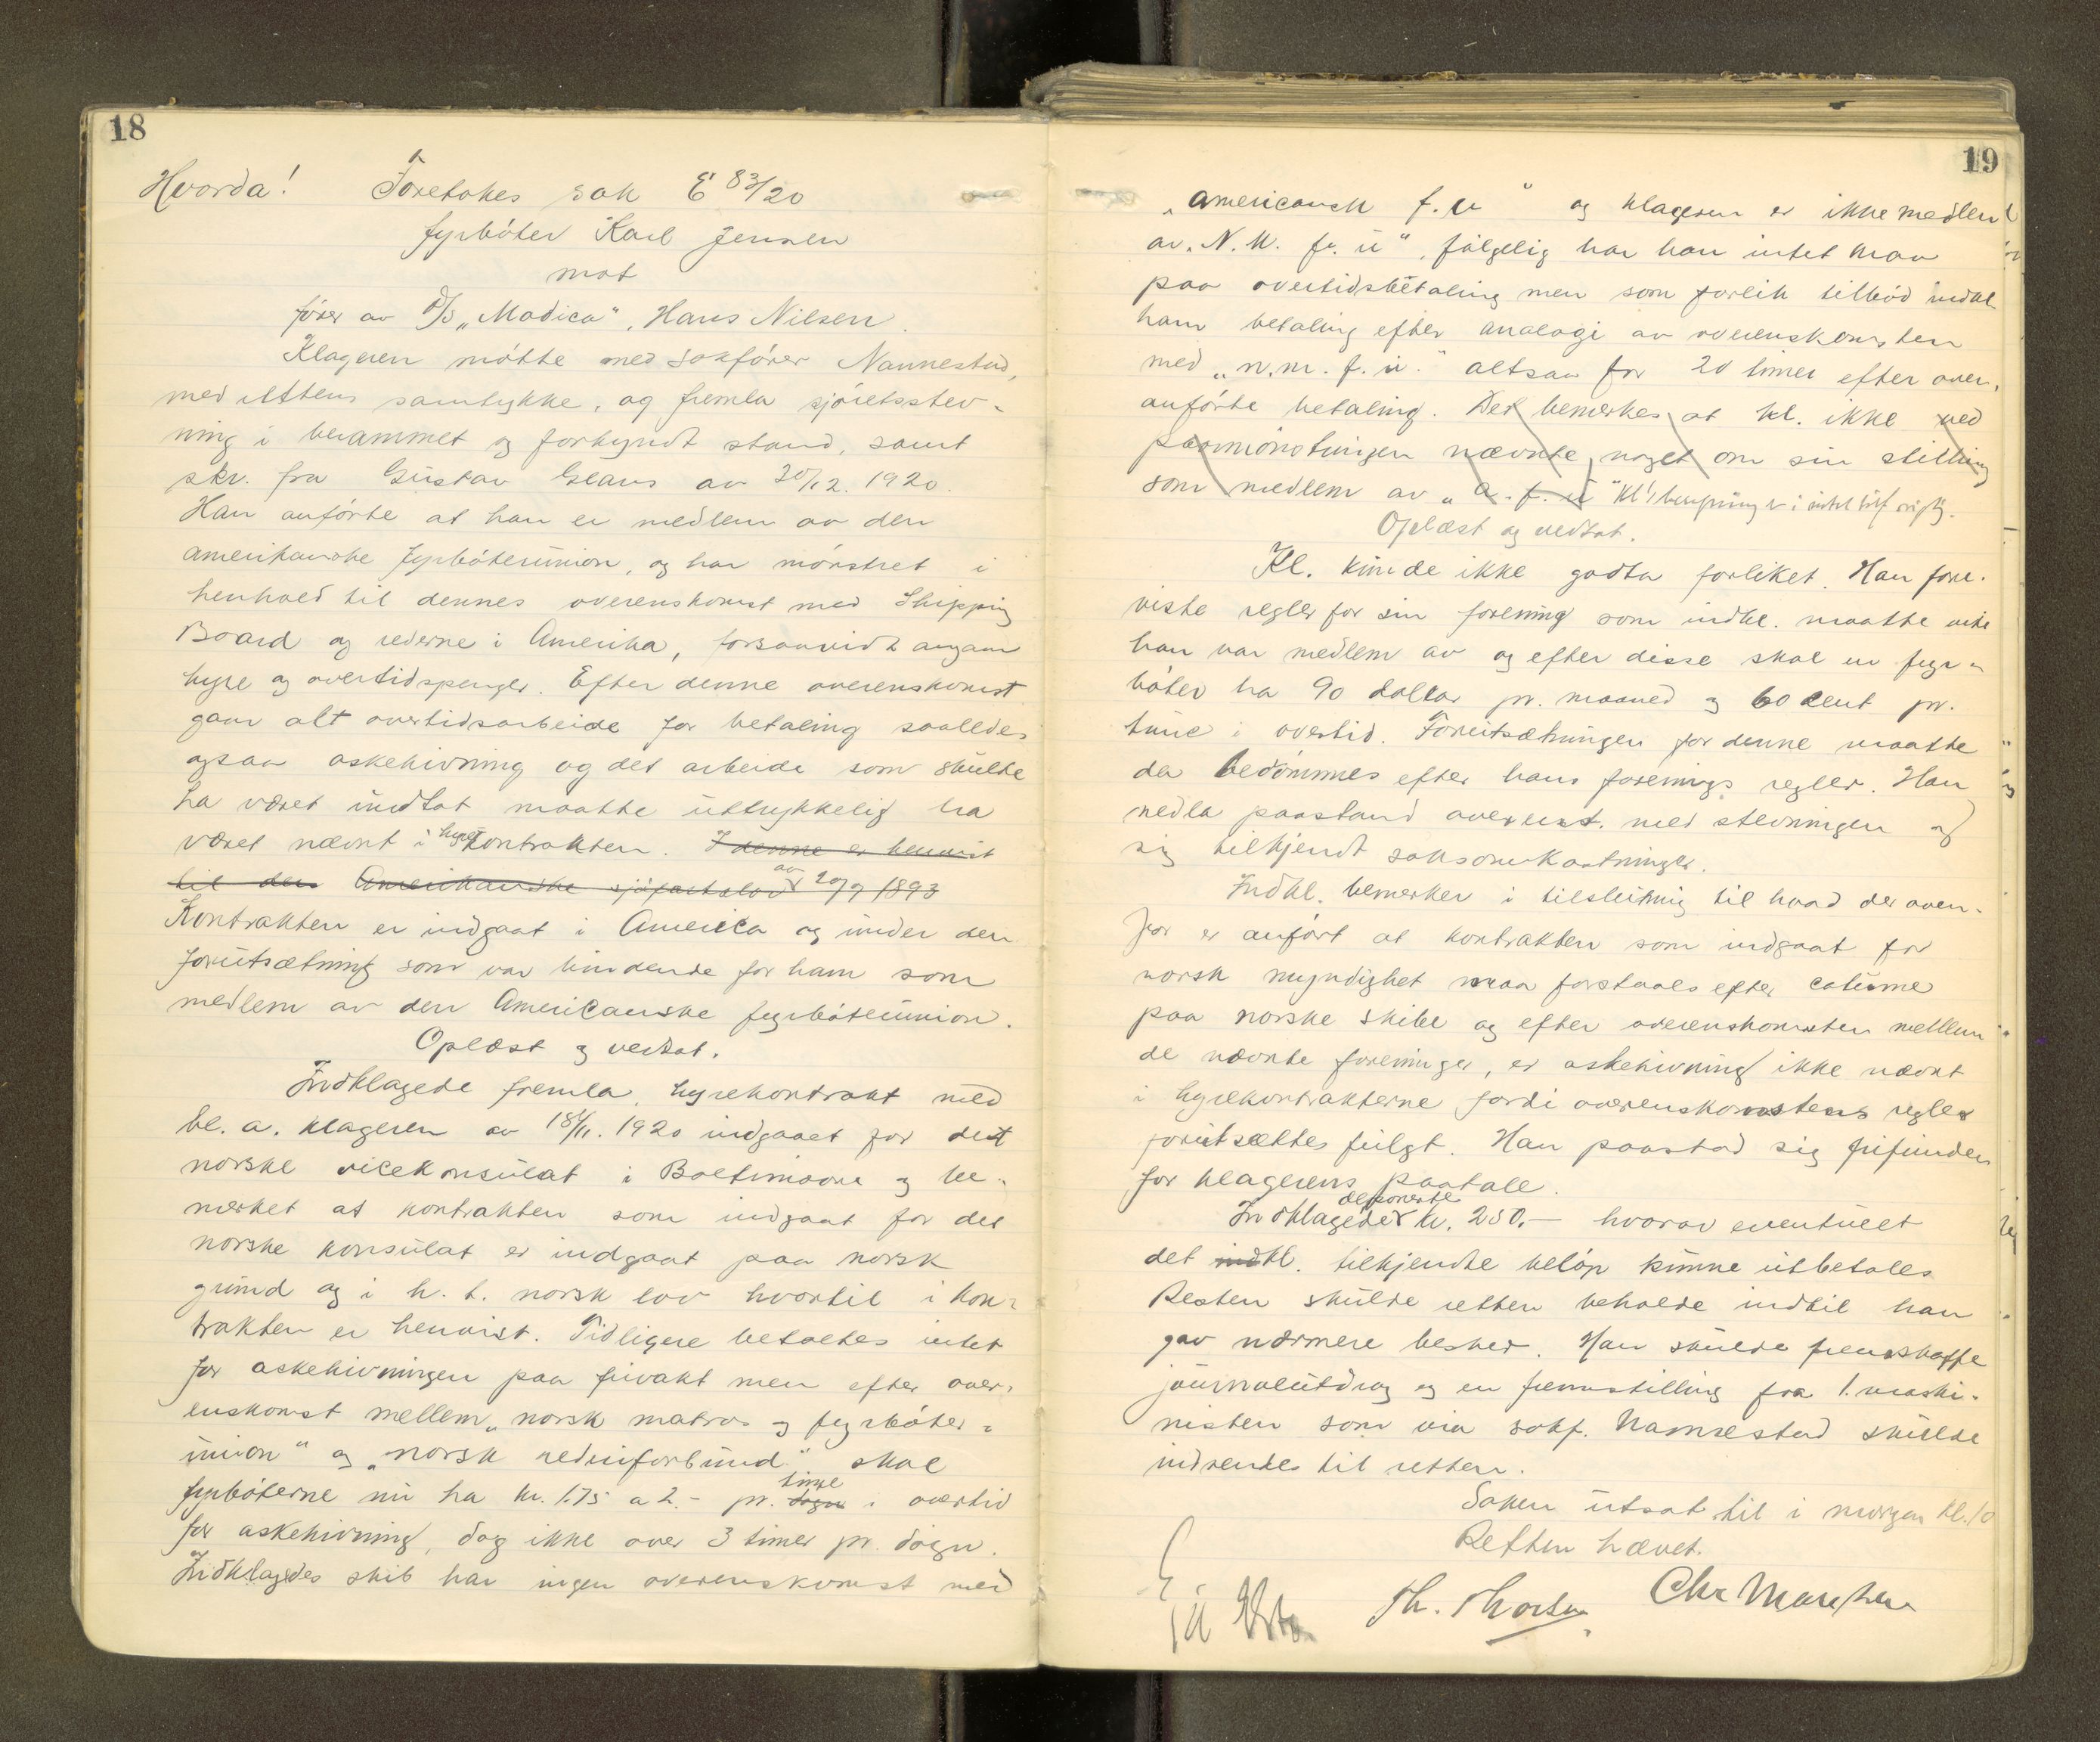 18
Hvorda! Foretokes sak E 83/20
fyrböter Karl Jensen
mot
förer av D/S „Modica“, Hans Nilsen.
Klageren mötte med sakförer Nannestad,
med rettens samtykke, og fremla sjöretsstev-
ning i berammet og forkyndt stand, samt
skr. fra Gustav Glans av 20/12. 1920.
Han anförte at han er medlem av den
amerikanske fyrböterunion, og har mönstret i
henhold til dennes overenskomst med Shipping
Board og rederne i Amerika, forsaavidt angaar
hyre og overtidspenger. Efter denne overenskomst
gaar alt overtidsarbeide for betaling saaledes
ogsaa askehivning og det arbeide som skulde
ha været undtat maatte uttrykkelig ha
været nævnt i hyrekontrakten. I denne er henvist
til den Amerikanske sjöfartslov av 20/9 1893
Kontrakten er indgaat i America og under den
forutsætning som var bindende for ham som
medlem av den Americanske fyrböterunion.
Oplæst og vedtat.
Indklagede fremla hyrekontrakt med
bl. a. klageren av 18/11. 1920 indgaaet for det
norske vicekonsulat i Baltimore og be-
merket at kontrakten som indgaat for det
norske konsulat er indgaat paa norsk
grund og i h. t. norsk lov hvortil i kon-
trakten er henvist. Tidligere betaltes intet
for askehivningen paa frivakt men efter over-
enskomst mellem „norsk matros og fyrböter-
union“ og „norsk rederforbund“ skal
fyrböterne nu ha kr. 1.75 a 2.- pr. dögn time i overtid
for askehivning, dog ikke over 3 timer pr. dögn.
Indklagedes skib har ingen overenskomst med
19
„americansk f.u“ og klageren er ikke medlem
av „N. M. fr. u“, fölgelig har han intet krav
paa overtidsbetaling men som forlik tilböd indkl.
ham betaling efter analogi av overenskomsten
med „n.m.f.u.“ altsaa for 20 timer efter oven-
anförte betaling. Det bemerkes at kl. ikke ved
paamönstringen nævnte noget om sin stilling
som medlem av „a.f.u“ Kl's
Oplæst og vedtat.
Kl. kunde ikke godta forliket. Han fore-
viste regler for sin forening som indkl. maatte vite
han var medlem av og efter disse skal en fyr-
böter ha 90 dollar pr. maaned og 60 cent pr.
time i overtid. Forutsætningen for denne maatte
da bedömmes efter hans forenings regler. Han
nedla paastand overenst. med stevningen og
sig tilkjendt saksomkostninger.
Indkl. bemerker i tilslutning til hvad der oven-
for er anfört at kontrakten som indgaat for
norsk myndighet maa forstaaes efter cutume
paa norske skibe og efter overenskomsten mellem
de nævnte foreninger, er askehivning ikke nævnt
i hyrekontrakterne fordi overenskomstens regler
forutsættes fulgt. Han paastod sig frifunden
for klagerens paatale.
Indklagede deponerte kr. 250.- hvorav eventuelt
det indkl. tilkjendte belöp kunne utbetales
Resten skulde retten beholde indtil han
gav nærmere besked. Han skulde fremskaffe
journalutdrag og en fremstilling fra 1. maski-
nisten som via sakf. Nannestad skulde
indsendes til retten.
Saken utsat til i morgen kl. 10
Retten hævet.
Th. Thorsen Chr